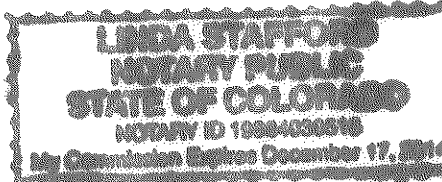 LINDA STAFFORD
NOTARY PUBLIC
STATE OF COLORADO
NOTARY ID
My Commission Expires December 17,